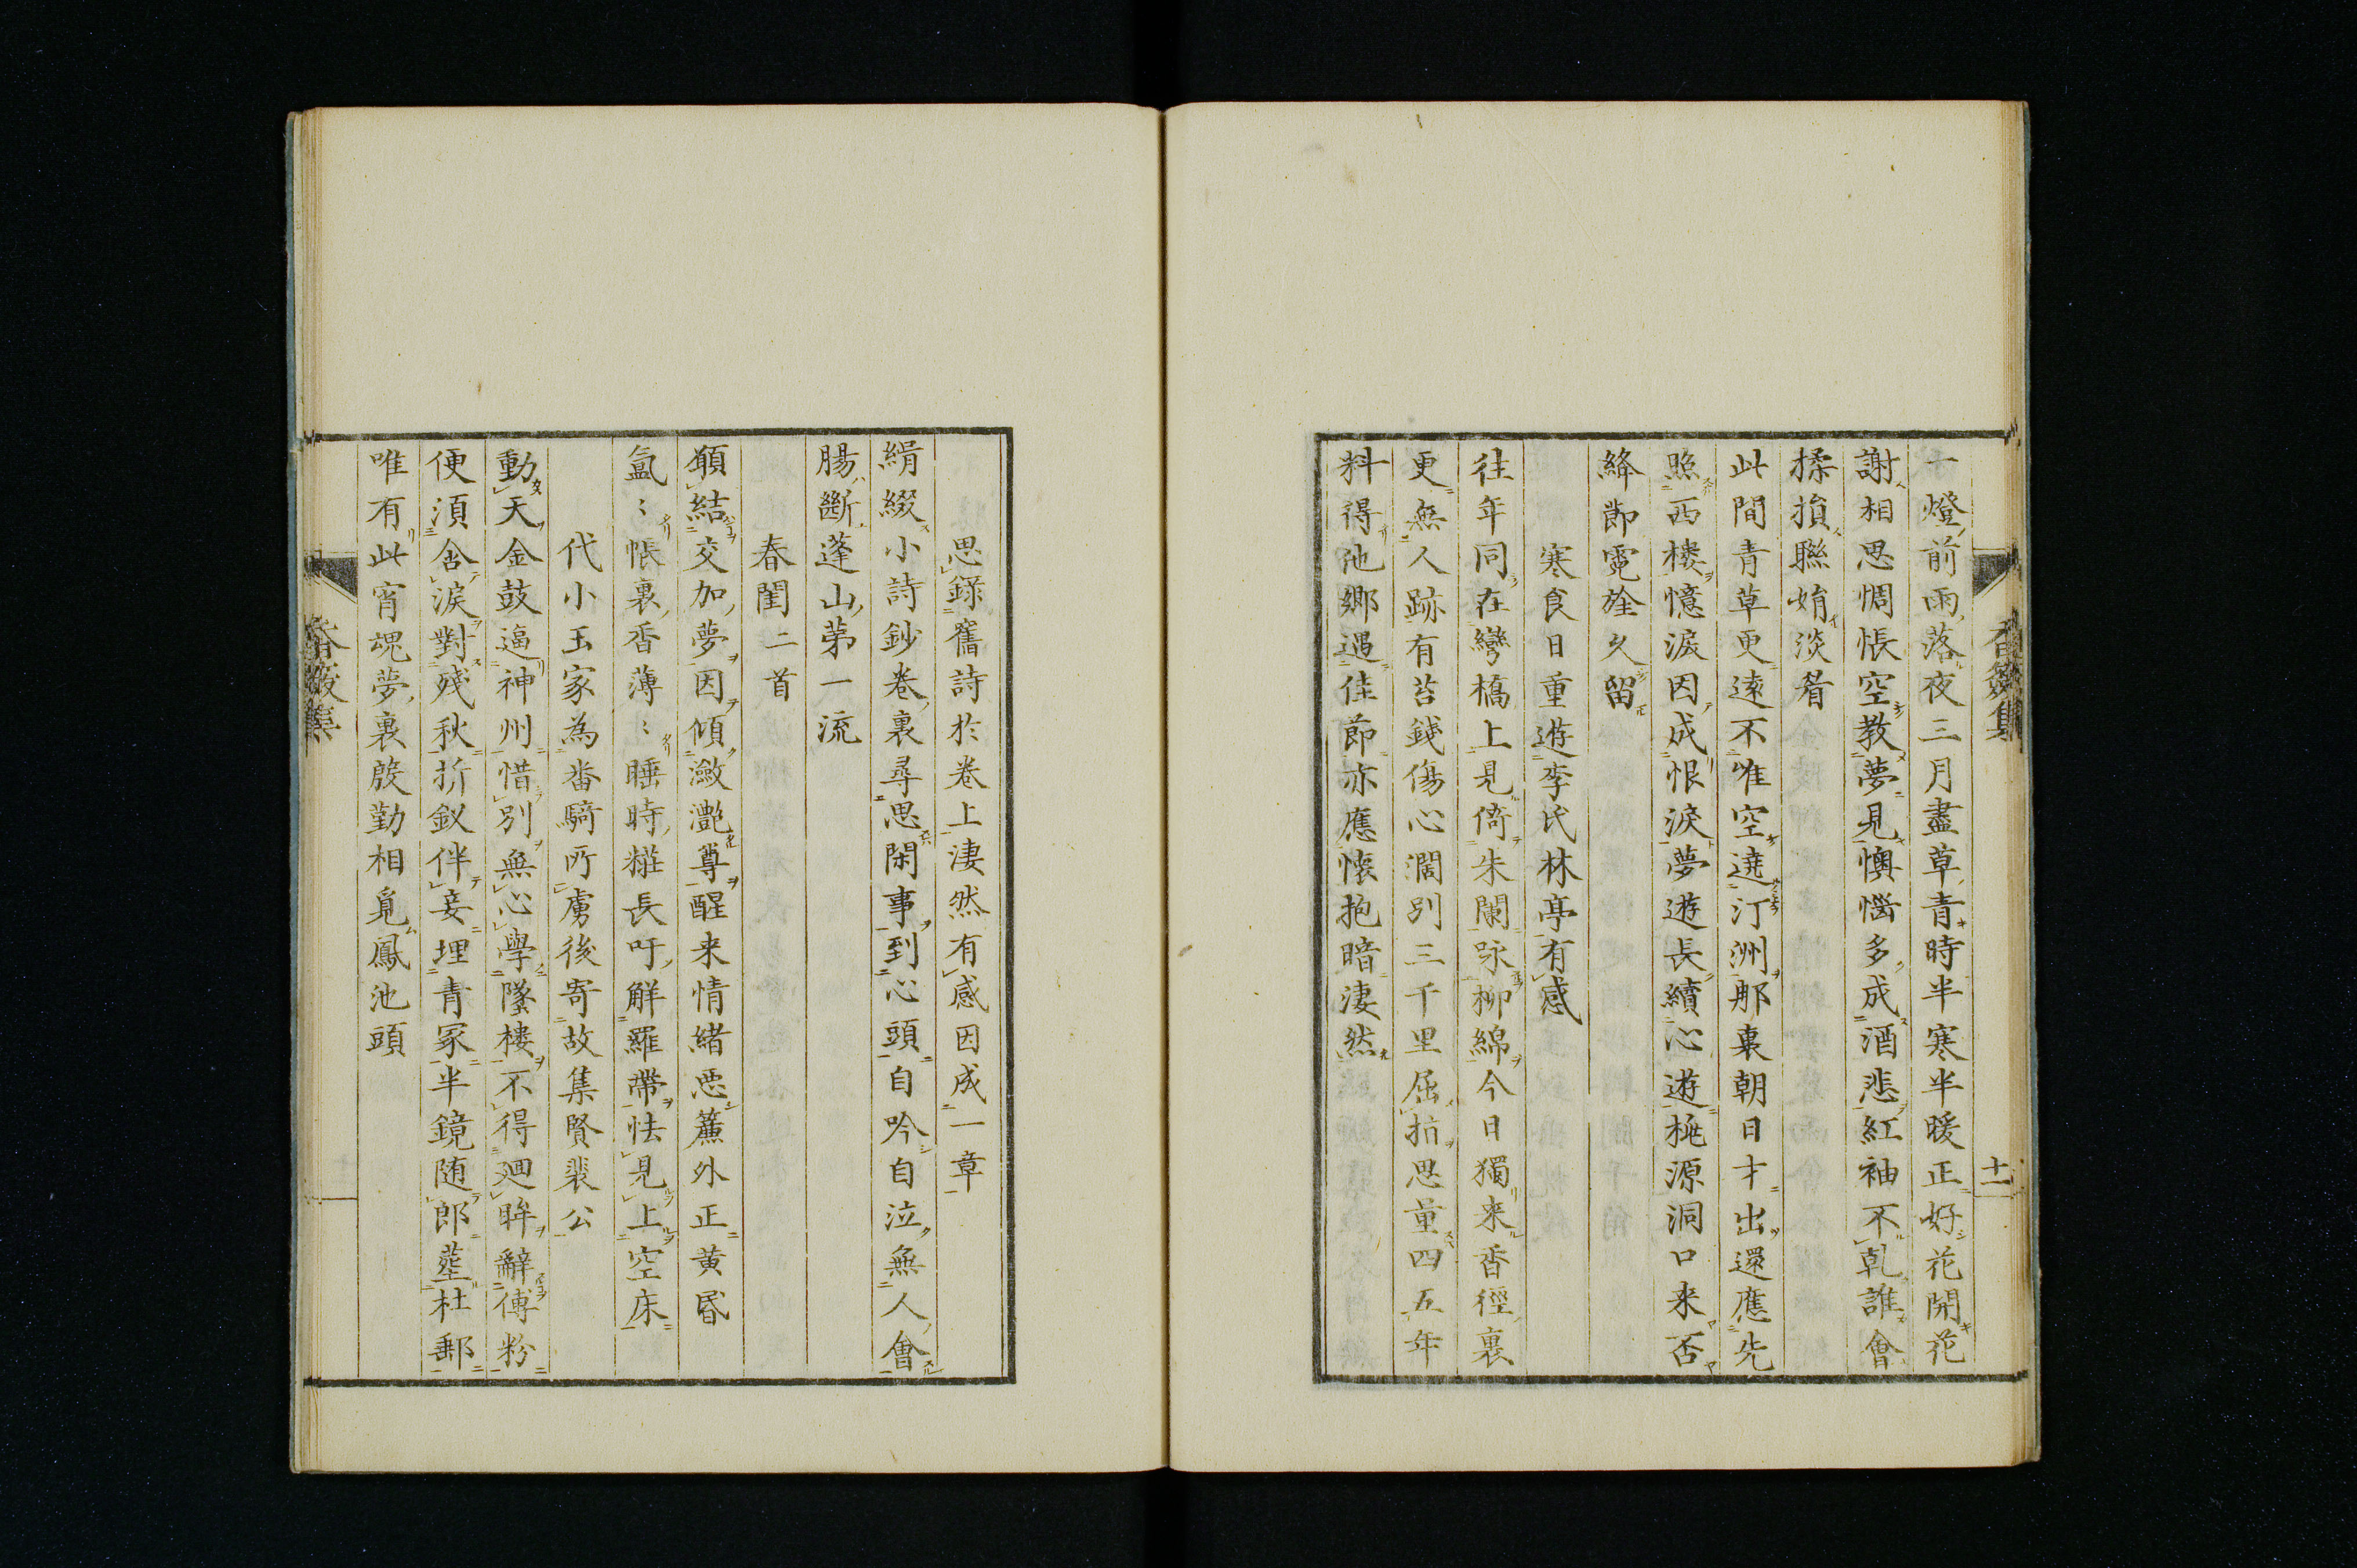 香奩集
十一
一燈前雨落夜三月盡草青時半寒半暖正好花開花
謝相思惆悵空教夢見懊惱多成酒悲紅袖不乾誰會
揉損聯娟淡眉
此間青草更遠不唯空遶汀洲那裏朝日才出還應先
照西樓憶淚因成恨淚夢遊長續心遊桃源洞口来否
絳節霓旌久留
寒食日重遊李氏林亭有感
往年同在彎橋上見倚朱闌詠柳綿今日獨来香徑裏
更無人跡有苔錢傷心濶別三千里屈指思量四五年
料得他鄉遇佳節亦應懷抱暗淒然
思錄舊詩於卷上淒然有感因成一章
緝綴小詩鈔卷裏尋思閑事到心頭自吟自泣無人會
腸斷蓬山第一流
春閨二首
願結交加夢因傾瀲灔尊醒来情緒惡簾外正黄昏
氳〻帳裏香薄〻睡時糚長吁解羅帶怯見上空床
代小玉家為畨騎所虜後寄故集賢裴公
動天金鼓逼神州惜別無心學墜樓不得廻眸辭傅粉
便須含淚對殘秋折釵伴妾埋青冢半鏡随郎塟杜郵
唯有此宵魂夢裏殷勤相覓鳳池頭
香奩集